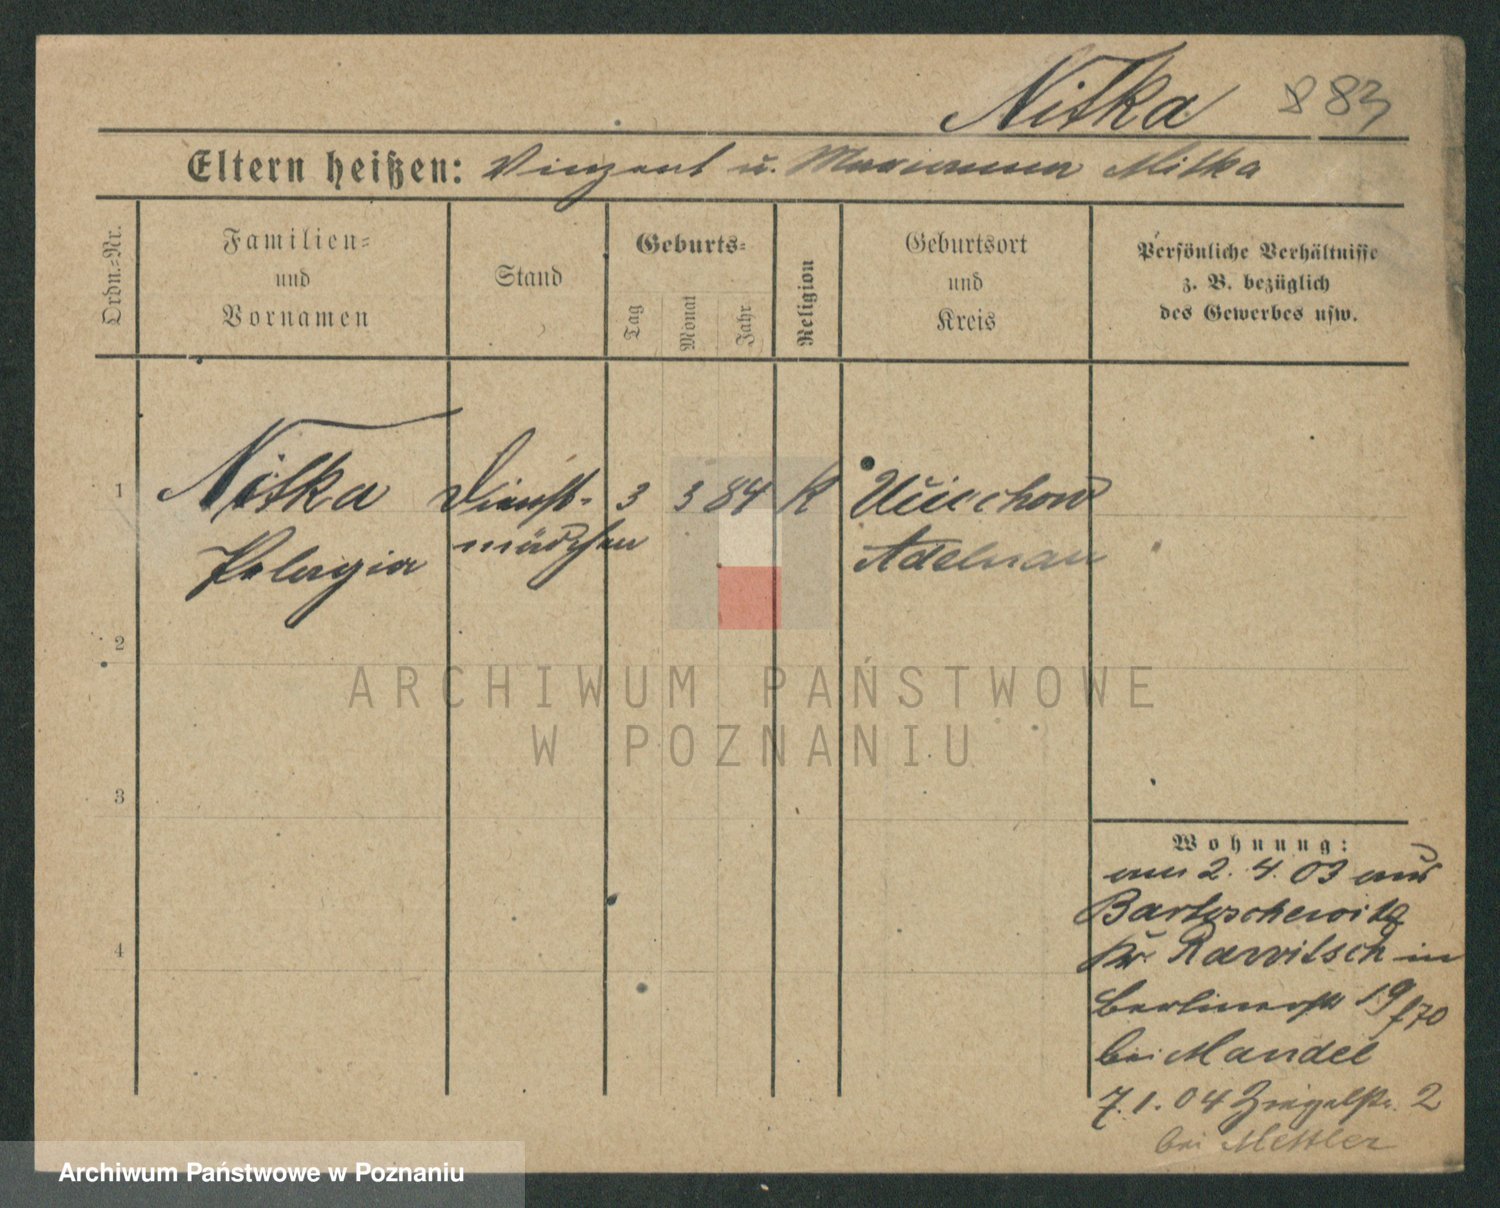 Nitka 883
Eltern heißen: Vinzent u. Marianna Nitka
Ordn.=Nr.
Familien=
und
Vornamen
Stand
Geburts=
Tag
Monat
Jahr
Religion
Geburtsort
und
Kreis
Persönliche Verhältnisse
z. B. bezüglich
des Gewerbes usw.
1
Nitka
Pelagia
Dienst-
mädchen
3
3
84
K
Adelnau
2
3
4
Wohnung:
am 2. 4. 03 aus
Kr. Rawitsch in
Berlinerstr 19
bei Mandel
7. 1. 04 Ziegelstr. 2
bei
ARCHIWUM PAŃSTWOWE
W POZNANIU
Archiwum Państwowe w Poznaniu